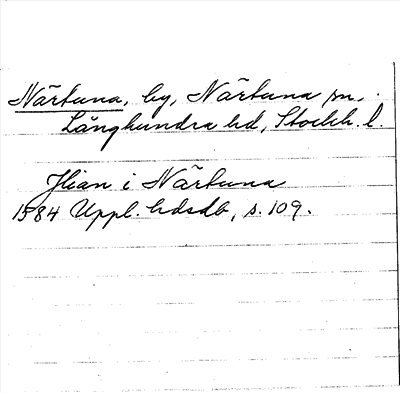 Närtuna, by, Närtuna sn,
Långhundra hd, Stockh. l.
Jlian i Närtuna
1584 Uppl. hdsdb, s. 109.